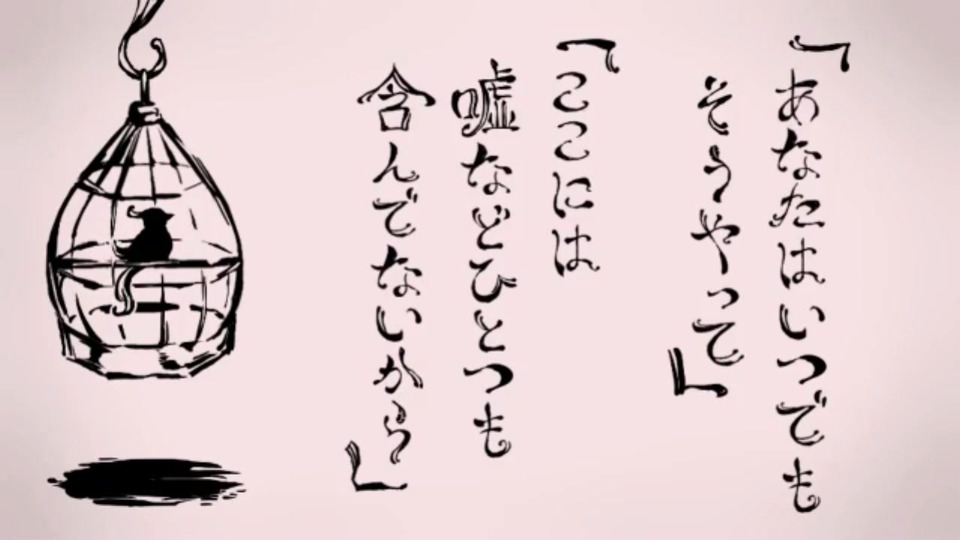 「あなたはいつでも
そうやって」
「ここには
嘘などひとつも
含んでないから」